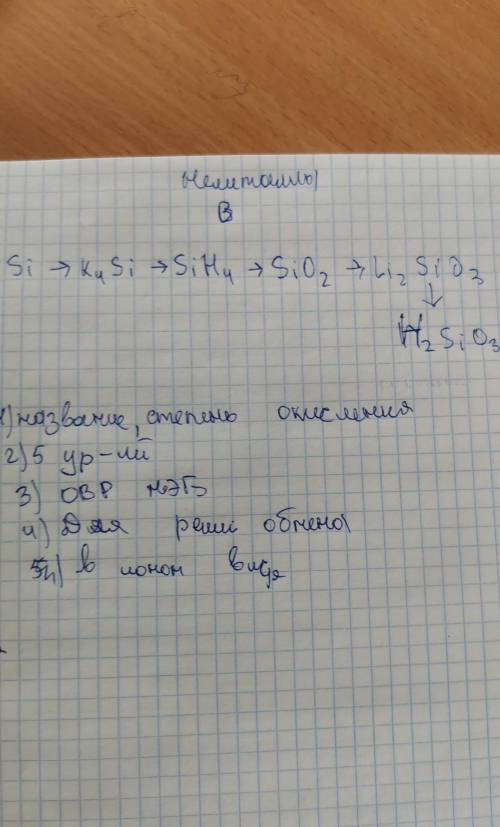 Неметаллы
В
Si → K4Si → SiH4 → SiO2 → Li2SiO3
↓
H2SiO3
1) название, степень окисления
2) 5 ур-ий
3) ОВР МЭБ
4) Для обмена
в ионом виде